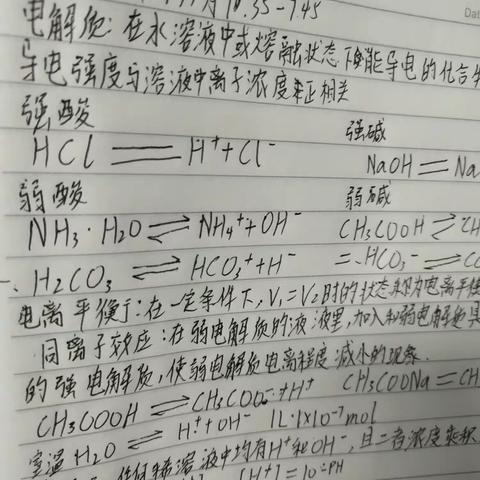 10.35-7.45
电解质：在水溶液中或熔融状态下能导电的化合
导电强度与溶液中离子浓度正相关
强酸 强碱
HCl ══ H⁺+Cl⁻ NaOH ══ Na
弱酸 弱碱
NH₃·H₂O ⇌ NH₄⁺+OH⁻ CH₃COOH ⇌ CH
一、H₂CO₃ ⇌ HCO₃⁺+H⁻ 二、HCO₃⁻ ⇌ CO
电离平衡：在一定条件下，V₁=V₂时的状态称为电离平
同离子效应：在弱电解质的溶液里，加入和弱电解质具
的强电解质，使弱电解质电离程度减小的现象.
CH₃COOH ⇌ CH₃COO⁻+H⁺ CH₃COONa=CH
室温 H₂O ⇌ H⁺+OH⁻ 1L·1×10⁻⁷mol
任何稀溶液中均有H⁺和OH⁻，且二者浓度乘积
[H⁺]=10⁻ᴾᴴ